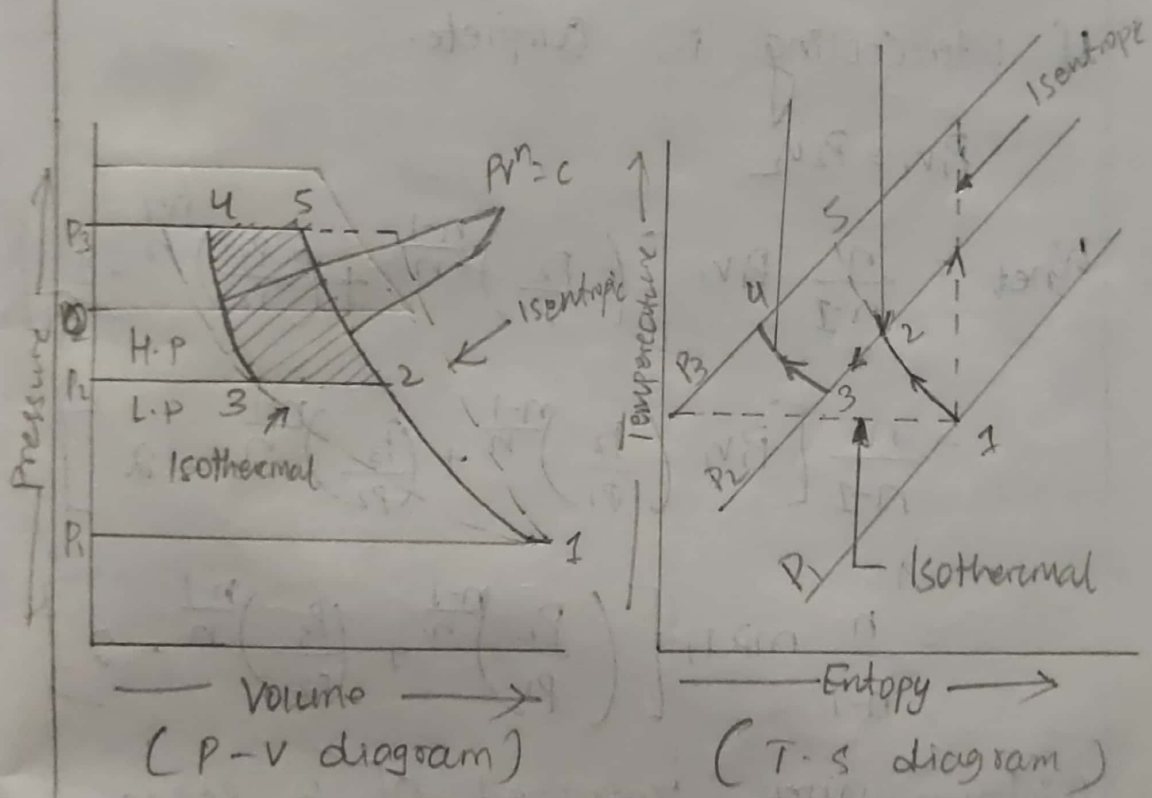 Pressure
P3
P2
P1
4
5
PVⁿ=C
Isentropic
H.P
L.P
3
2
Isothermal
1
Volume
(P-V diagram)
Temperature
Isentrope
5
4
P3
2
3
P2
1
P1
Isothermal
Entopy
(T-S diagram)